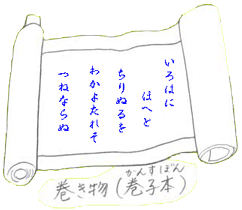 いろはに
ほへと
ちりぬるを
わかよたれそ
つねならぬ
巻き物(巻子本)
かんすぼん